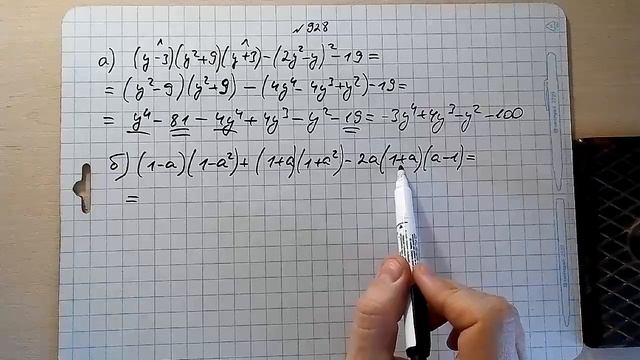 № 928
а) (y-3)(y²+9)(y+3)-(2y²-y)²-19=
= (y²-9)(y²+9) - (4y⁴-4y³+y²)-19=
= y⁴-81-4y⁴+4y³-y²-19=-3y⁴+4y³-y²-100
б) (1-a)(1-a²)+(1+a)(1+a²)-2a(1+a)(a-1)=
=